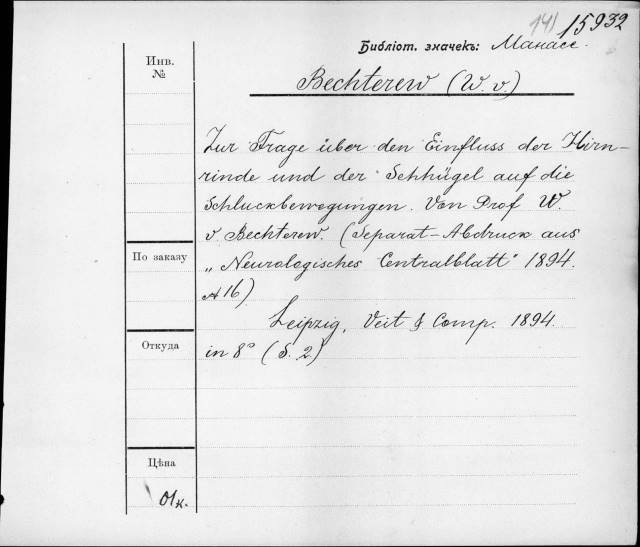 141 15932
Библіот. значекъ: Манасс.
Инв.
№
Bechterew (W. v.)
Zur Frage über den Einfluss der Hirn-
rinde und der Sehhügel auf die
Schluckbewegungen. Von Prof W.
v. Bechterew. (Separat-Abdruck aus
„Neurologisches Centralblatt" 1894.
№ 16)
По заказу
Leipzig, Veit & Comp. 1894.
Откуда
in 8° (S. 2)
Цѣна
01 к.